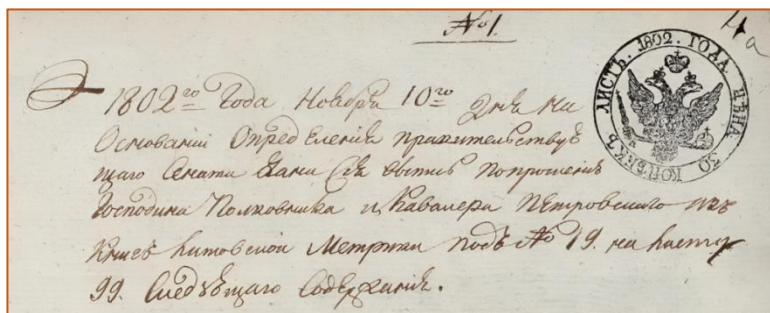 № 1.
4 а
ЛИСТЪ. 1802. ГОДА. ЦѢНА 30 КОПѢЕКЪ
1802го Года Ноября 10го Дня На
Основании Определения правительству
щаго Сената Дана Сія выпись Попрошенію
Господина Полковника и Кавалера Петровскаго изъ
Книгъ Литовской Метрики подъ № 19. на листу
99. Следующаго Содержания.